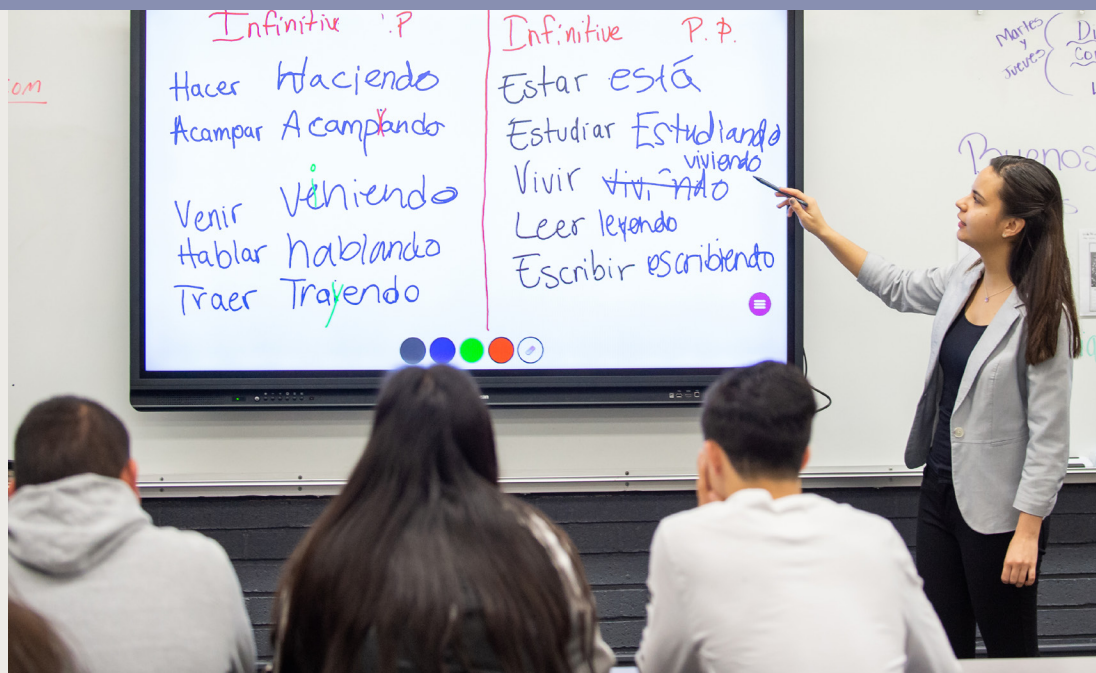 Infinitive P
Hacer Haciendo
Acampar Acampando
Venir Viniendo
Hablar hablando
Traer Trayendo
Infinitive P.P.
Estar está
Estudiar Estudiando
viviendo
Vivir
Leer leyendo
Escribir escribiendo
om
Martes
y
Jueves
Buenos